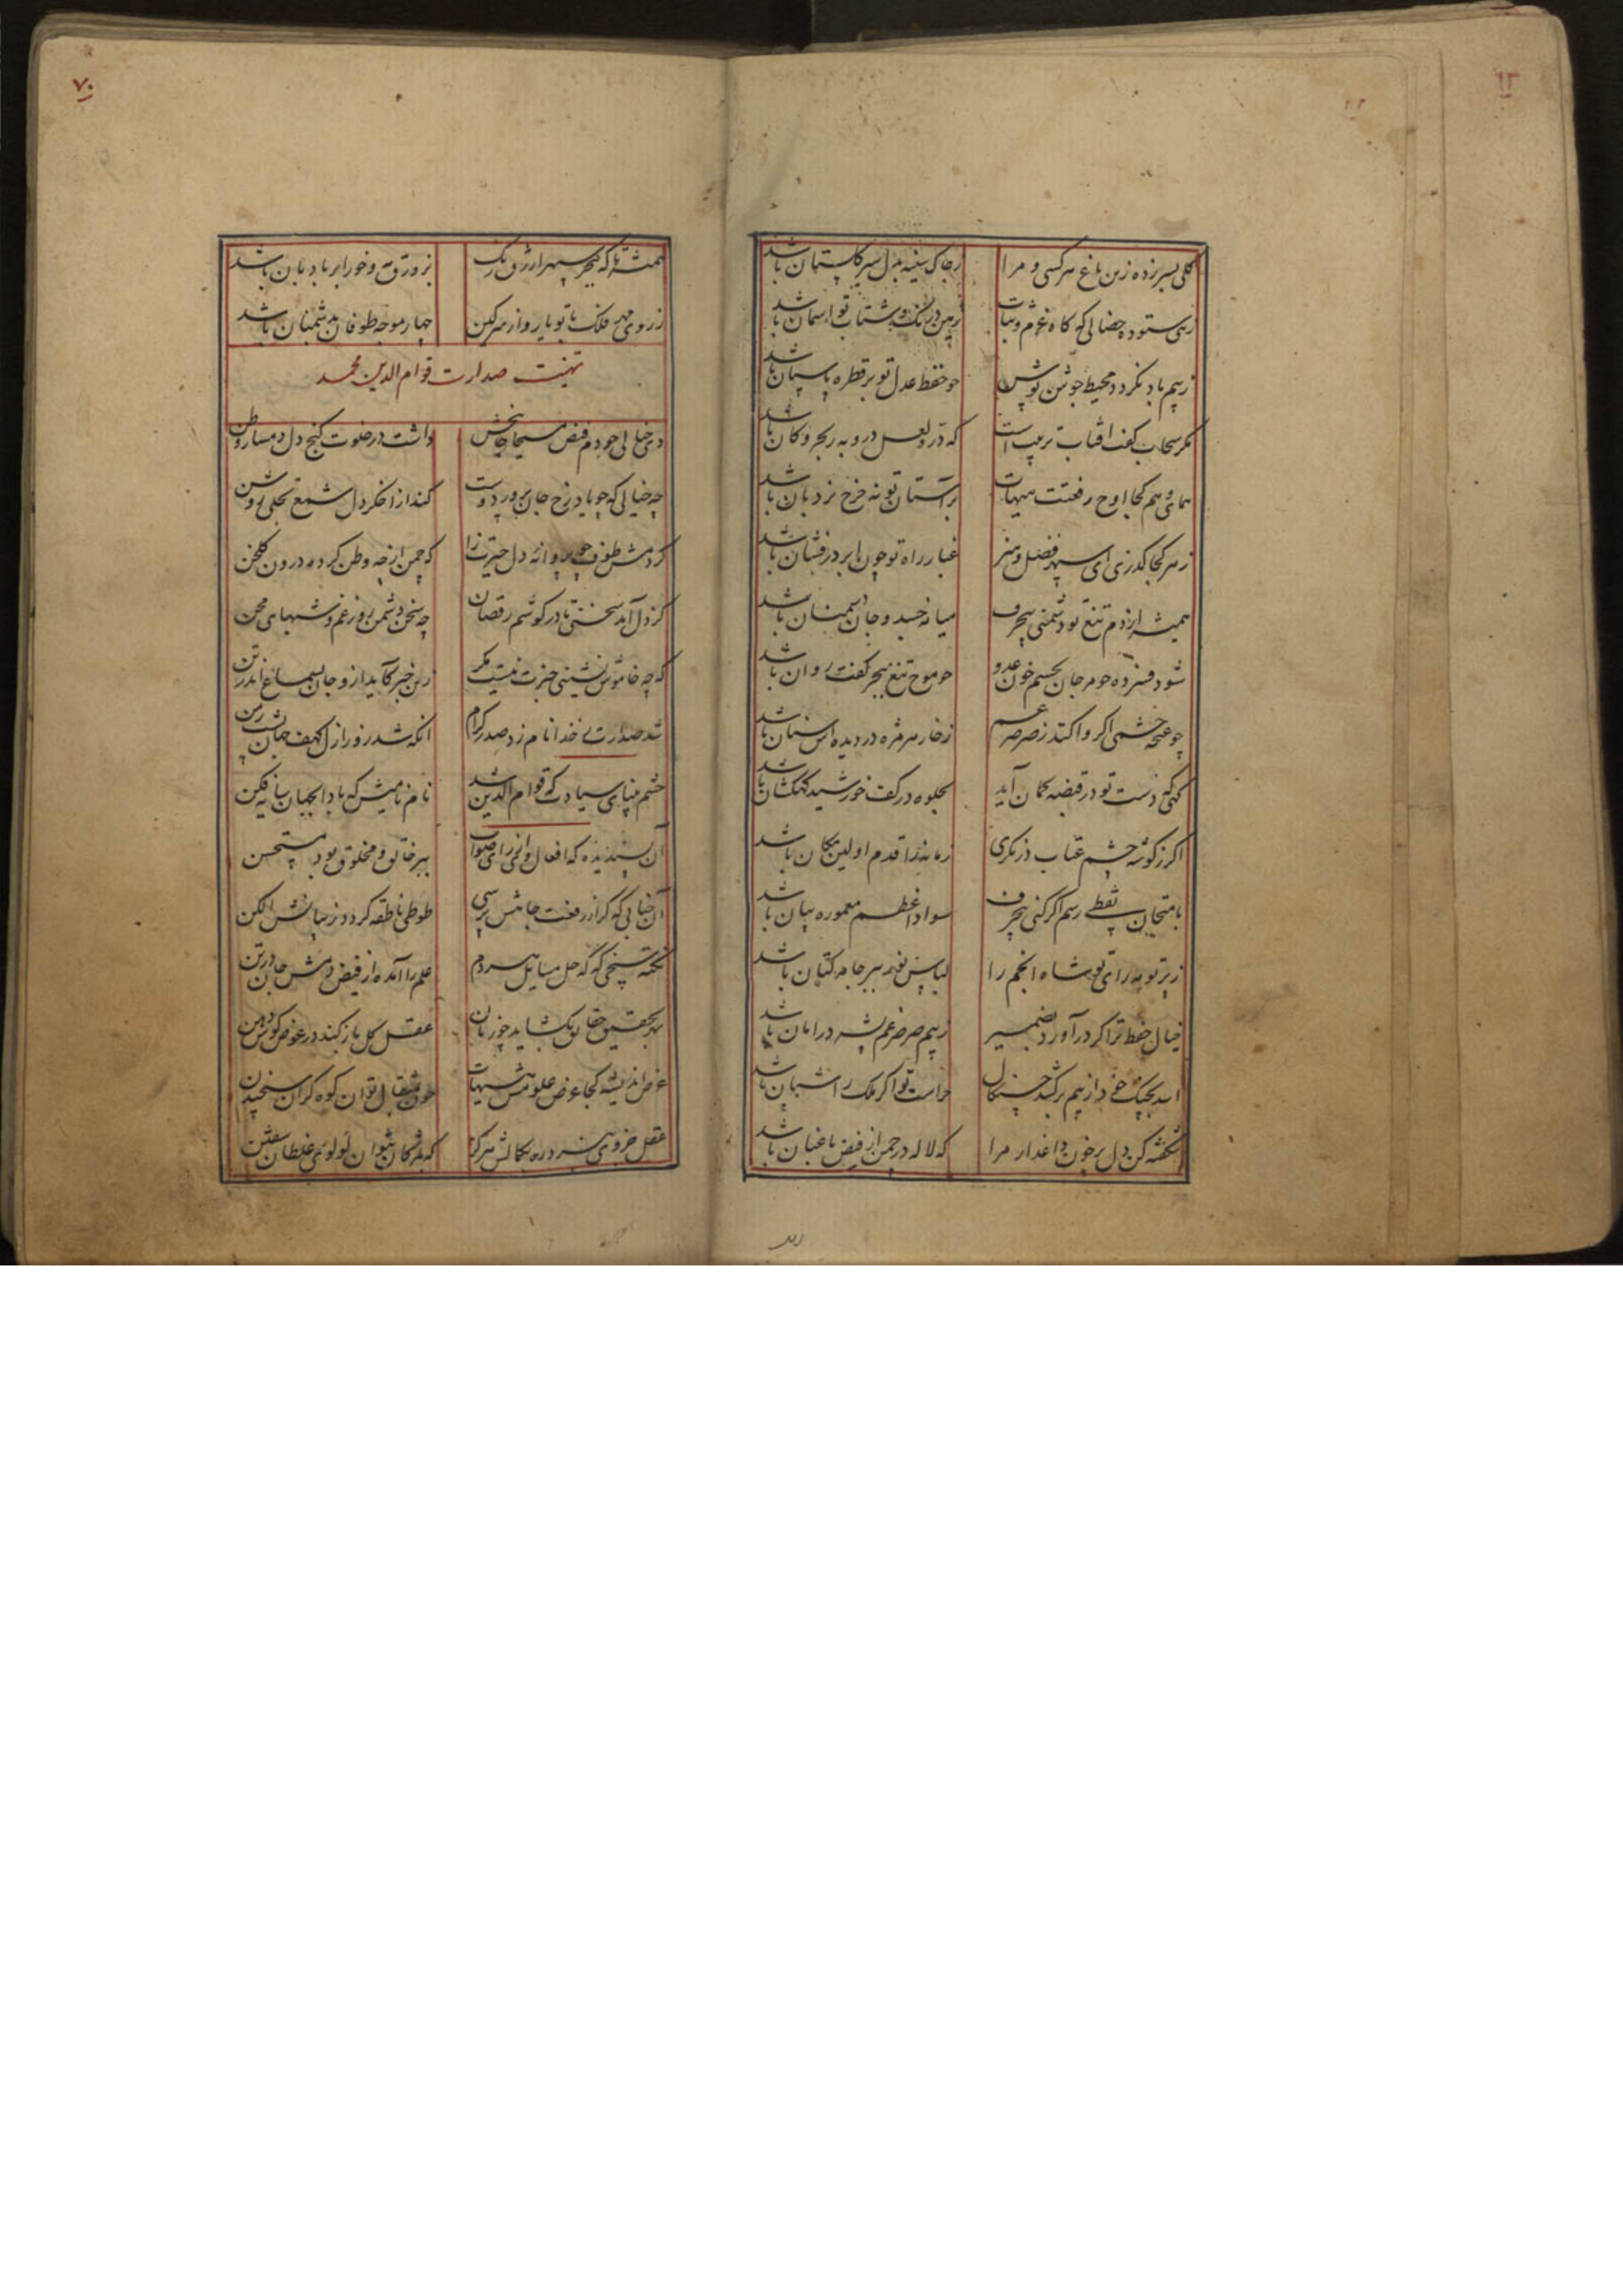 ۱۲
گلی بسر زده زین باغ هر کسی و مرا
ز چاک سینه بدل سیر گلستان باشد
زهی ستوده خصالی که گاه عزم و ثبات
زمین درنگ و شتاب تو آسمان باشد
ز بیم باد نگردد محیط جوشن پوش
چو حفظ عدل تو بر قطره پاسبان باشد
مگر سحاب کفت آفتاب تربیت است
که در و لعل درو به ز بحر و کان باشد
همای وهم کجا اوج رفعتت هیهات
بر آستان تو نه چرخ نردبان باشد
ز هر کجا گذری ای سپهر فضل و هنر
غبار راه تو چون ابر درفشان باشد
همیشه از دم تیغ تو دشمنی بیحرف
میانه جسد و جان دشمنان باشد
شود فسرده چو مرجان بجسم خون عدو
چو موج تیغ ببحر کفت روان باشد
چو غنچه چشمی اگر وا کند ز صرصر
ز خار هر مژه در دیده اش سنان باشد
گهی که دست تو در قبضه کمان آید
بجلوه در کف خورشید کهکشان باشد
اگر ز گوشه چشم عتاب در نگری
زمانه را قدم اولین مکان باشد
بامتحان نقطی رسم اگر کنی بیحرف
سواد اعظم معموره بیان باشد
ز پرتو مه رای تو شاه انجم را
لباس نور ببر جامه کتان باشد
خیال حفظ ترا گر در آورد بضمیر
ز بیم صرصر غم پشه در امان باشد
اسد بجنگ خود از بیم برکشد چنگال
حراست تو اگر ملک را شبان باشد
شکفته کن دل پر خون داغدار مرا
که لاله در چمن از فیض باغبان باشد
۷۰
همیشه تا که ببحر سپهر ازرق رنگ
ز زورق مه و خور ابر بادبان باشد
ز روی مهر فلک با تو یار و از سر کین
چهار موجه طوفان بدشمنان باشد
تهنیت صدارت قوام الدین محمد
دی خیالی چو دم فیض مسیحا جانبخش
داشت در خلوت کنج دل دمساز وطن
چه خیالی که چو یاد رخ جان پرور دوست
کند از اخگر دل شمع تجلی روشن
گردمش طوف چو پروانه دل حیرت زا
که چمن از چه وطن کرده درون گلخن
کز دل آمد سخنی تا در گوشم رقصان
چه سخن دشمن روز غم و شبهای محن
که چه خاموش نشینی خبرت نیست مگر
زین خبر کآید ازو جان بسماع اندر تن
شد صدارت ز خدا نامزد صدر کرام
آنکه شد روز ازل کهف جهان پشت زمن
چشم بینای سیادت که قوام الدین شد
نام نامیش که بادا بجهان سایه فکن
آن پسندیده که افعال وی و رای صواب
ببر خالق و مخلوق بود مستحسن
آن جنابی که گر از رفعت جاهش پرسی
طوطی ناطقه گردد ز بیانش الکن
نکته سنجی که گه حل مسایل هر دم
علم را آمده از فیض دمش جان در تن
بهر تحقیق حقایق بگشاید چو زبان
عقل کل باز کند در عوض گوش دهن
غوص اندیشه کجا غوص علومش هیهات
چون بمثقال توان کوه گران سنجیدن
که بمژگان نتوان لولوی غلطان سفتن